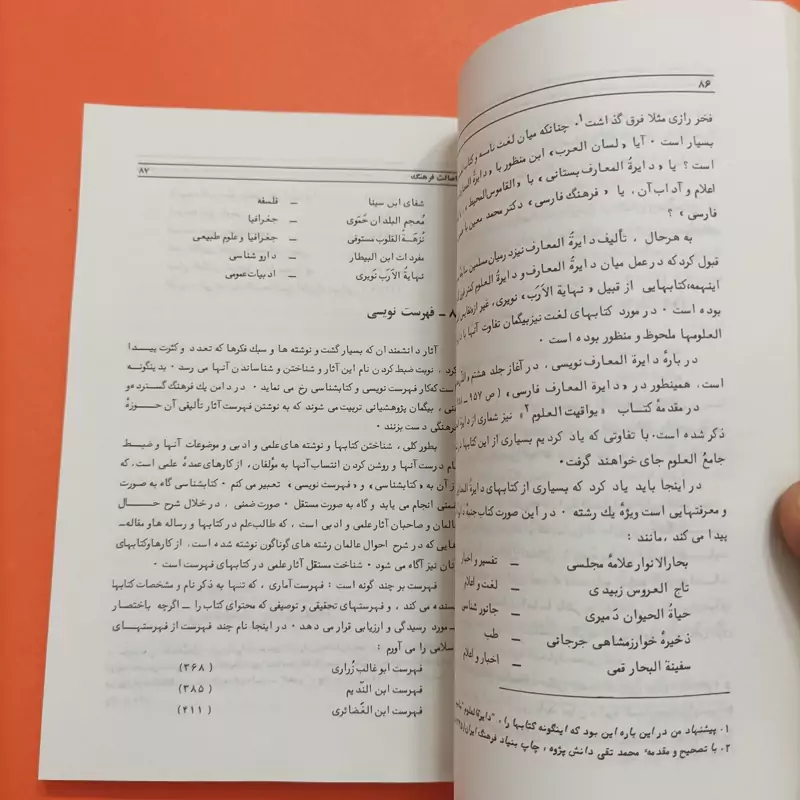 ۸۶
فخر رازی مثلا فرق گذاشت۱. چنانکه میان لغت نامه و
بسیار است ۰ آیا «لسان العرب» ابن منظور با «دایرة
است؟ یا «دایرة المعارف بستانی» با «القاموس المحیط»
اعلام و آداب آن، یا «فرهنگ فارسی» دکتر محمد معین با
فارسی»؟
به هرحال، تألیف دایرة المعارف نیز در میان مسلمین
قبول کرد که در عمل میان دایرة المعارف و دایرة العلوم
اینهمه، کتابهایی از قبیل «نهایة الاَرَب» نویری، غیر از
بوده است ۰ در مورد کتابهای لغت نیز بیگمان تفاوت آنها با
العلومها ملحوظ و منظور بوده است ۰
در بارهٔ دایرة المعارف نویسی، در آغاز جلد هشتم
است. همینطور در «دایرة المعارف فارسی» (ص ۹۵۷ ـ
در مقدمهٔ کتاب «یواقیت العلوم»۲ نیز شماری از
ذکر شده است. با تفاوتی که یاد کردیم بسیاری از این کتابها
جامعُ العلوم جای خواهند گرفت۰
در اینجا باید یاد کرد که بسیاری از کتابهای دایرة
و معرفتهایی است ویژهٔ یك رشته ۰ در این صورت کتاب جنبهٔ
پیدا می کند، مانند:
بحارالانوار علامهٔ مجلسی ـ تفسیر و اخبار
تاج العروس زبیدی ـ لغت و اعلام
حیاةُ الحیوان دَمیری ـ جانور شناسی
ذخیرهٔ خوارزمشاهی جرجانی ـ طب
سفینة البحار قمی ـ اخبار و اعلام
۱. پیشنهاد من در این باره این بود که اینگونه کتابها را،
۲. با تصحیح و مقدمهٔ محمد تقی دانش پژوه، چاپ بنیاد فرهنگ ایران
اصالت فرهنگ ۸۷
شفای ابن سینا ـ فلسفه
مُعجم البلدان حَمَوی ـ جغرافیا
نُزهَةُ القلوب مستوفی ـ جغرافیا و علوم طبیعی
مفردات ابن البیطار ـ دارو شناسی
نهایةُ الاَرَب نُویری ـ ادبیات عمومی
۸ ـ فهرست نویسی
آثار دانشمندان که بسیار گشت و نوشته ها و سبك فکرها که تعدد و کثرت پیدا
کرد، نوبت ضبط کردن نام این آثار و شناختن و شناساندن آنها می رسد ۰ بدینگونه
است که کار فهرست نویسی و کتابشناسی رخ می نماید ۰ در دامن یك فرهنگ گسترده و
بیگمان پژوهشیانی تربیت می شوند که به نوشتن فهرست آثار تألیفی آن حوزهٔ
فرهنگی دست یزنند ۰
بطور کلی، شناختن کتابها و نوشته های علمی و ادبی و موضوعات آنها و ضبط
نام درست آنها و روشن کردن انتساب آنها به مؤلفان، از کارهای عمدهٔ علمی است. که
از آن به «کتابشناسی» و «فهرست نویسی» تعبیر می کنم ۰ کتابشناسی گاه به صورت
ضمنی انجام می یابد و گاه به صورت مستقل ۰ صورت ضمنی، در خلال شرح حال
عالمان و صاحبان آثار علمی و ادبی است، که طالب علم در کتابها و رساله ها و مقاله‌ـ
هایی که در شرح احوال عالمان رشته های گوناگون نوشته شده است. از کارها و کتابهای
آنان نیز آگاه می شود ۰ شناخت مستقل آثار علمی در کتابهای فهرست است ۰
فهرست بر چند گونه است: فهرست آماری، که تنها به ذکر نام و مشخصات کتابها
بسنده می کند، و فهرستهای تحقیقی و توصیفی که محتوای کتاب را ـ اگرچه باختصار
ـ مورد رسیدگی و ارزیابی قرار می دهد ۰ در اینجا نام چند فهرست از فهرستهای
اسلامی را می آورم:
فهرست ابو غالب زُراری (۳۶۸)
فهرست ابن النَّدیم (۳۸۵)
فهرست ابن الغَضائری (۴۱۱)